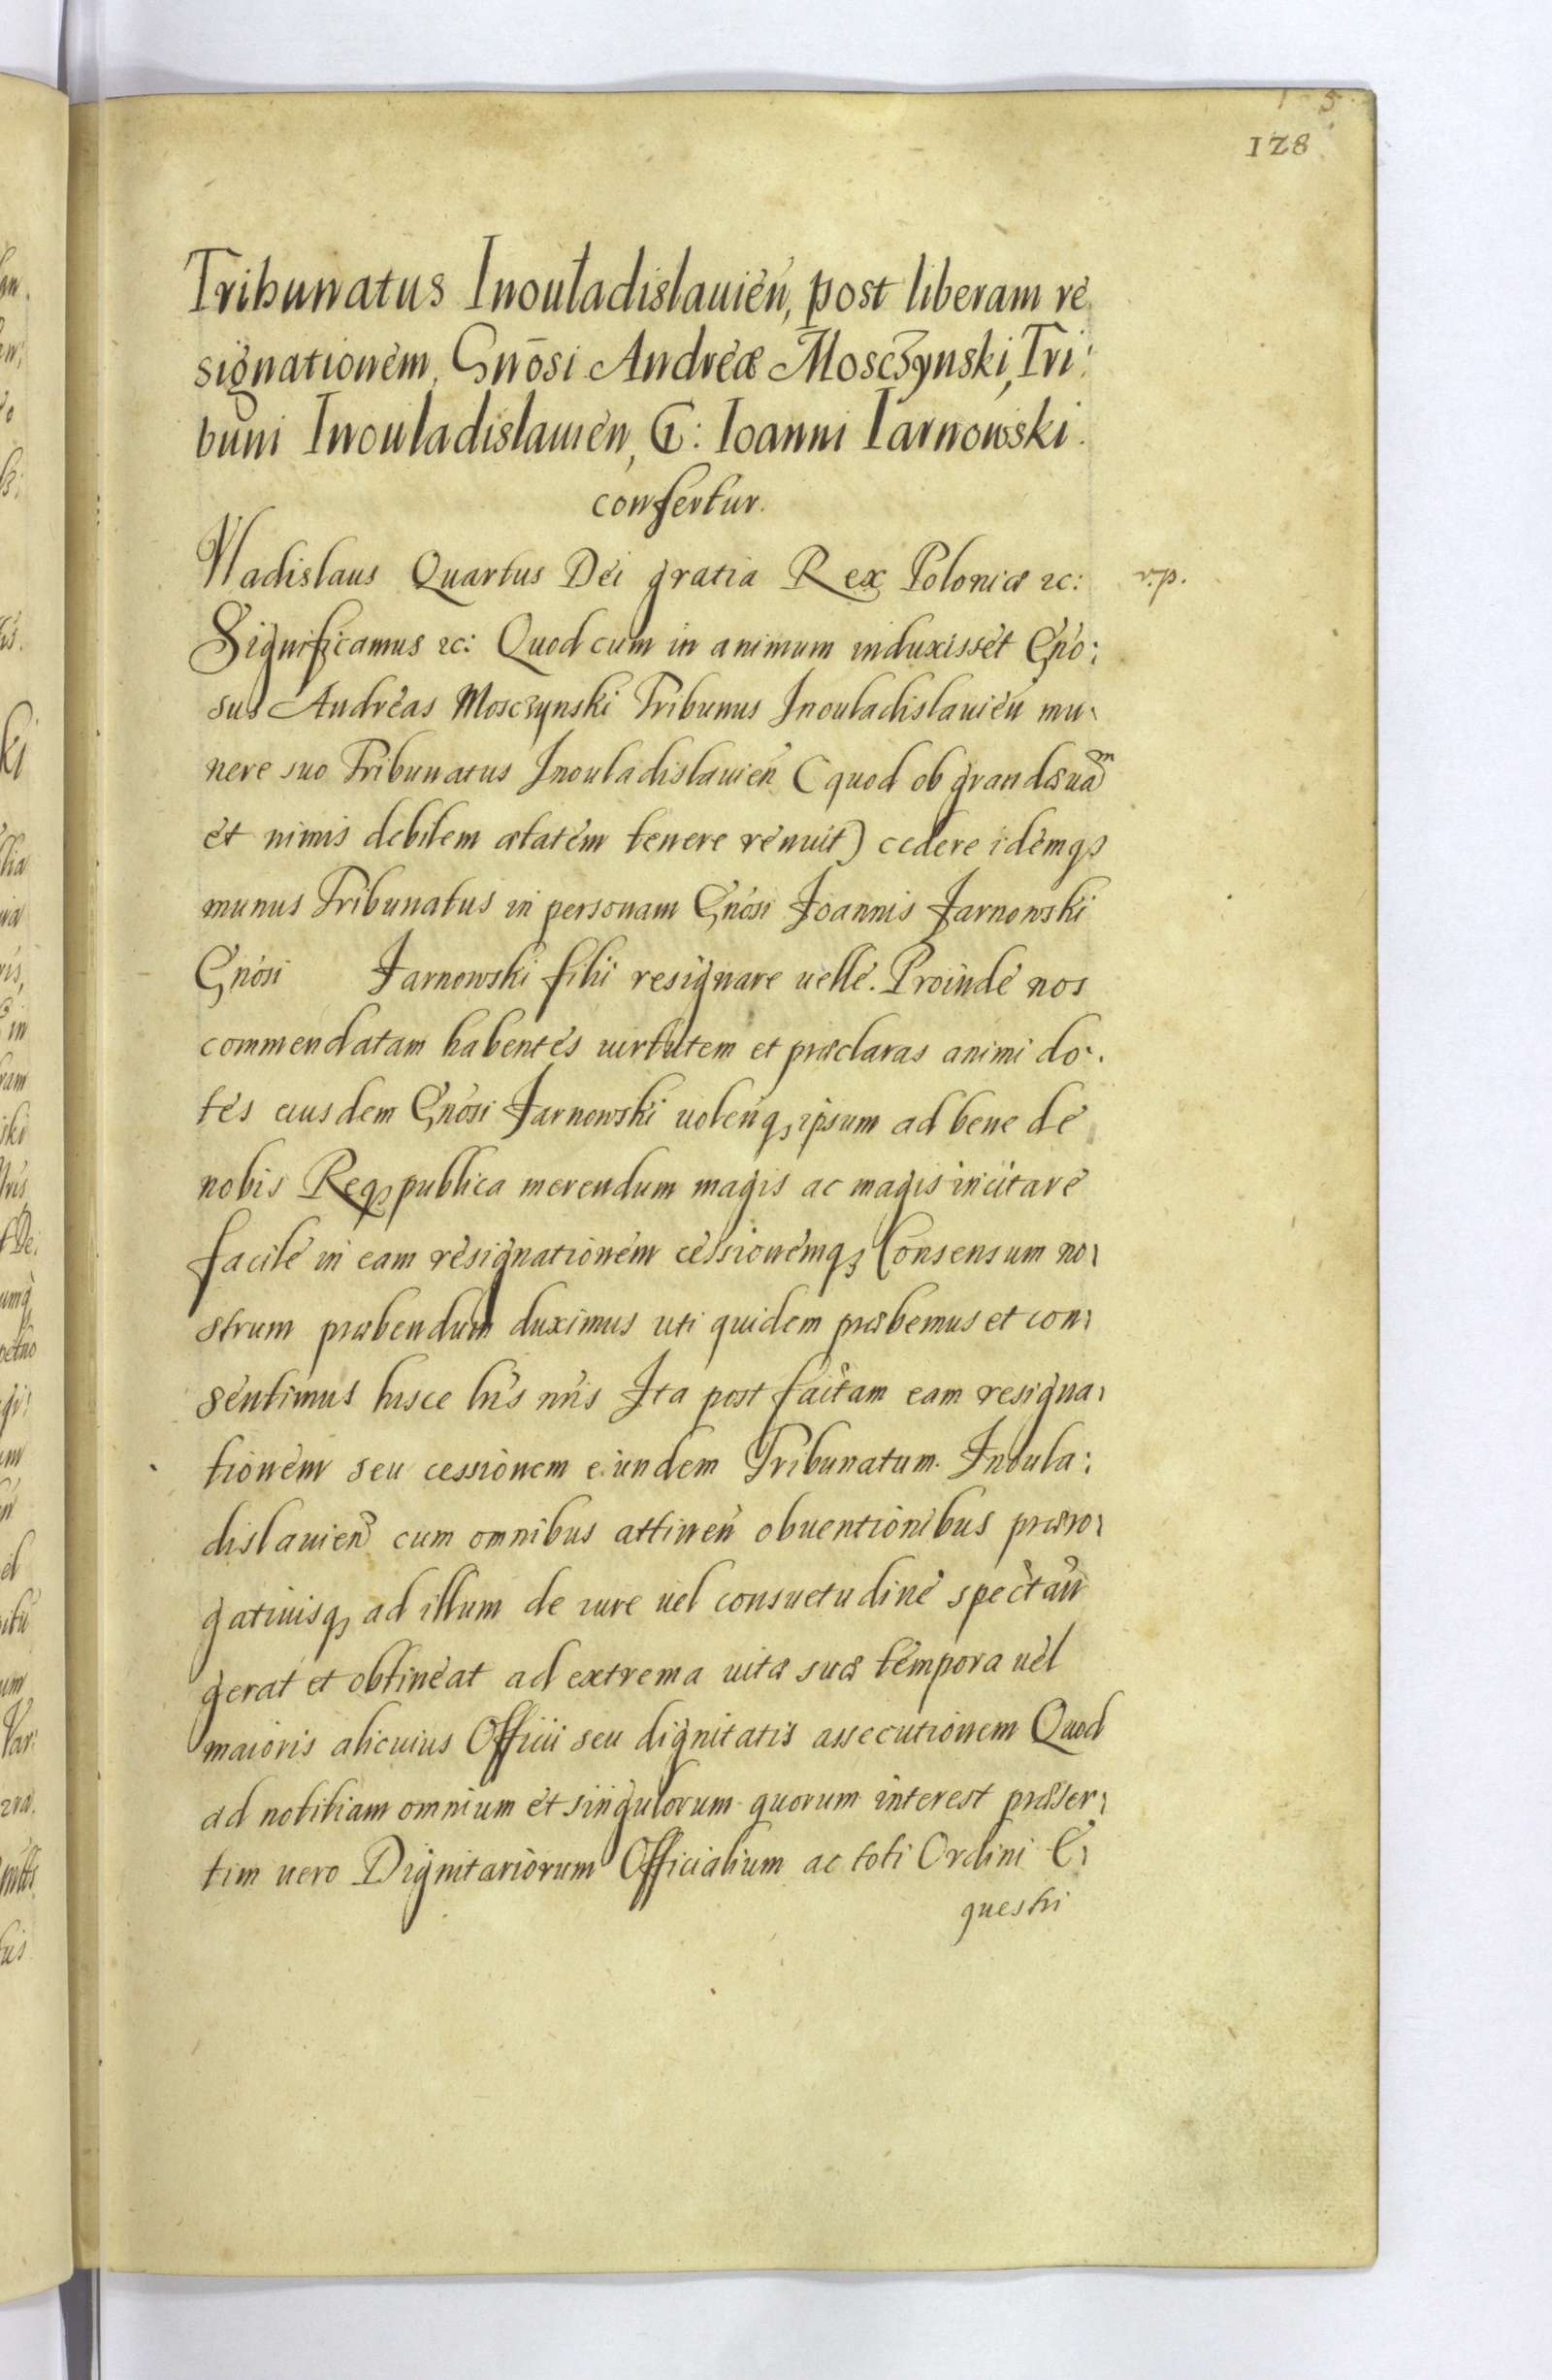 128
Tribunatus Inouladislauień, post liberam re
signationem Gnōsi Andreæ Mosczynski, Tri:
buni Inouladislauień, G: Ioanni Iarnowski
confertur.
Vladislaus Quartus Dei gratia Rex Poloniæ ꝛc: v.p.
Significamus ꝛc: Quod cum in animum induxisset Gńo:
sus Andreas Mosczynski Tribunus Inouladislauień mu
nere suo Tribunatus Inouladislauień (quod ob grandæuam
et nimis debilem ætatem tenere renuit) cedere idemqꝫ
munus Tribunatus in personam Gnósi Joannis Jarnowski
Gnósi Jarnowski filii resignare uelle. Proinde nos
commendatam habentes uirtutem et præclaras animi do.
tes eiusdem Gnósi Jarnowski uolenqꝫ ipsum ad bene de
nobis Reqꝫ publica merendum magis ac magis incitare
facile in eam resignationem cessionemqꝫ Consensum no
strum præbendum duximus uti quidem præbemus et con
sentimus hisce lris nris Ita post factam eam resigna
tionem seu cessionem eiundem Tribunatum Inoula:
dislauień cum omnibus attineń obuentionibus præro
gatiuisqꝫ ad illum de iure uel consuetudine spectań
gerat et obtineat ad extrema uitæ suæ tempora uel
maioris alicuius Officii seu dignitatis assecutionem Quod
ad notitiam omnium et singulorum quorum interest præser
tim uero Dignitariorum Officialium ac toti Ordini E
questri